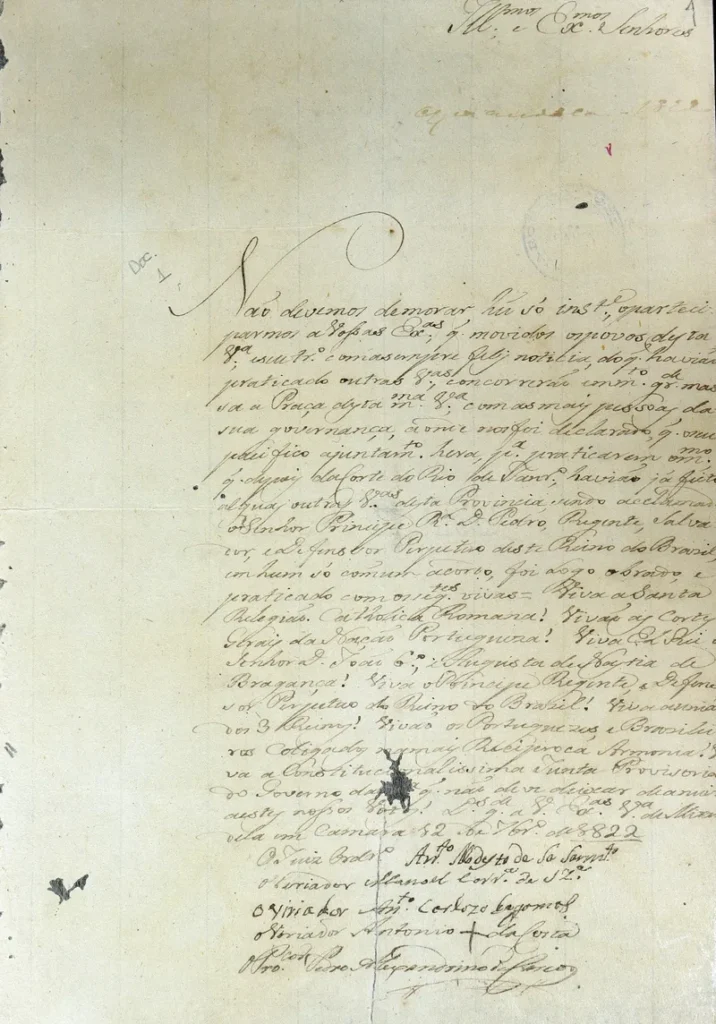 Ill.mos e Ex.mos Senhores
1822
Doc. 1
Não devemos demorar hũ só inst.e, o parteci-
parmos a Vossas Ex.as q. movidos os povos desta
V.a e seu tr.o com a sempre feliz noticia, do q. havião
praticado outras V.as, concorrerão em m.to gr.de mas-
sa a Praça desta m.ma V.a com as mais pessoas da
sua governança, aonde nos foi declarado, q. o seu
pacifico ajuntam.to hera, p.a praticarem o m.mo
q. depois da Corte do Rio de Janr.o havião já feito
alguas outras V.as desta Provincia, sendo acclamado
o Senhor Principe R.l D. Pedro, Regente, Salva-
dor, e Defensor Perpetuo deste Reino do Brasil,
em hum só comum acordo, foi logo obrado, e
praticado com os seg.tes vivas = Viva a Santa
Relegião Catholica Romana! Vivão as Cortes
Gerais da Nação Portugueza! Viva El Rei o
Senhor D. João 6.o, e Augusta de Nastia de
Bragança! Viva o Principe Regente, e Defen-
sor Perpetuo do Reino do Brasil! Viva a união
dos 3 Reinos! Vivão os Portuguezes e Brasilei-
ros Coligados na mais Reciproca Armonia! Vi-
va a Constitucionalissima Junta Provisoria
do Governo da q. não deve deixar de annuir
a estes nossos Votos! D.s g.de a V. Ex.as V.a de Miran-
dela em Camara 12 de 8br.o de 1822
O Juiz Ordr.o Ant.to Modesto de Sa Sarm.to
O Veriador Manoel Corr.a de Sz.a
O Viriador Ant.o Cardozo
O Veriador Antonio + da Costa
O Pro.cor Pedro Alexandrino